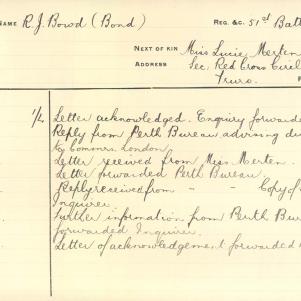 NAME R. J. Bowd (Bond) REG. &C. 51st Batt
NEXT OF KIN Miss Lucie Merten
ADDRESS Sec. Red Cross Circl
Truro.
1/2 Letter acknowledged. Enquiry forwarde
Reply from Perth Bureau advising di
by Commrs. London.
Letter received from Miss Merten.
Letter forwarded Perth Bureau.
Reply received from " " Copy of
Inquirer.
Further information from Perth Bur
forwarded Inquirer.
Letter of acknowledgement forwarded